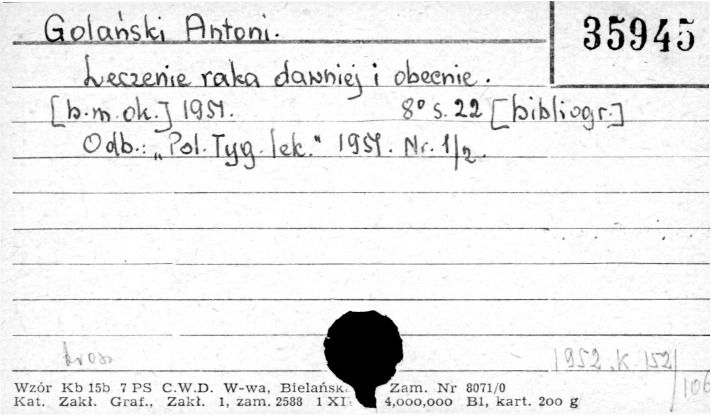 Golański Antoni. 35945
Leczenie raka dawniej i obecnie.
[b.m.ok.] 1951. 8° s. 22 [bibliogr.]
Odb.: „Pol. Tyg. lek." 1951. Nr. 1/2.
1952. K. 152/
/106
Wzór Kb 15b 7 PS C.W.D. W-wa, Bielańska Zam. Nr 8071/0
Kat. Zakł. Graf., Zakł. 1, zam. 2588 1 XI 4,000,000 B1, kart. 200 g